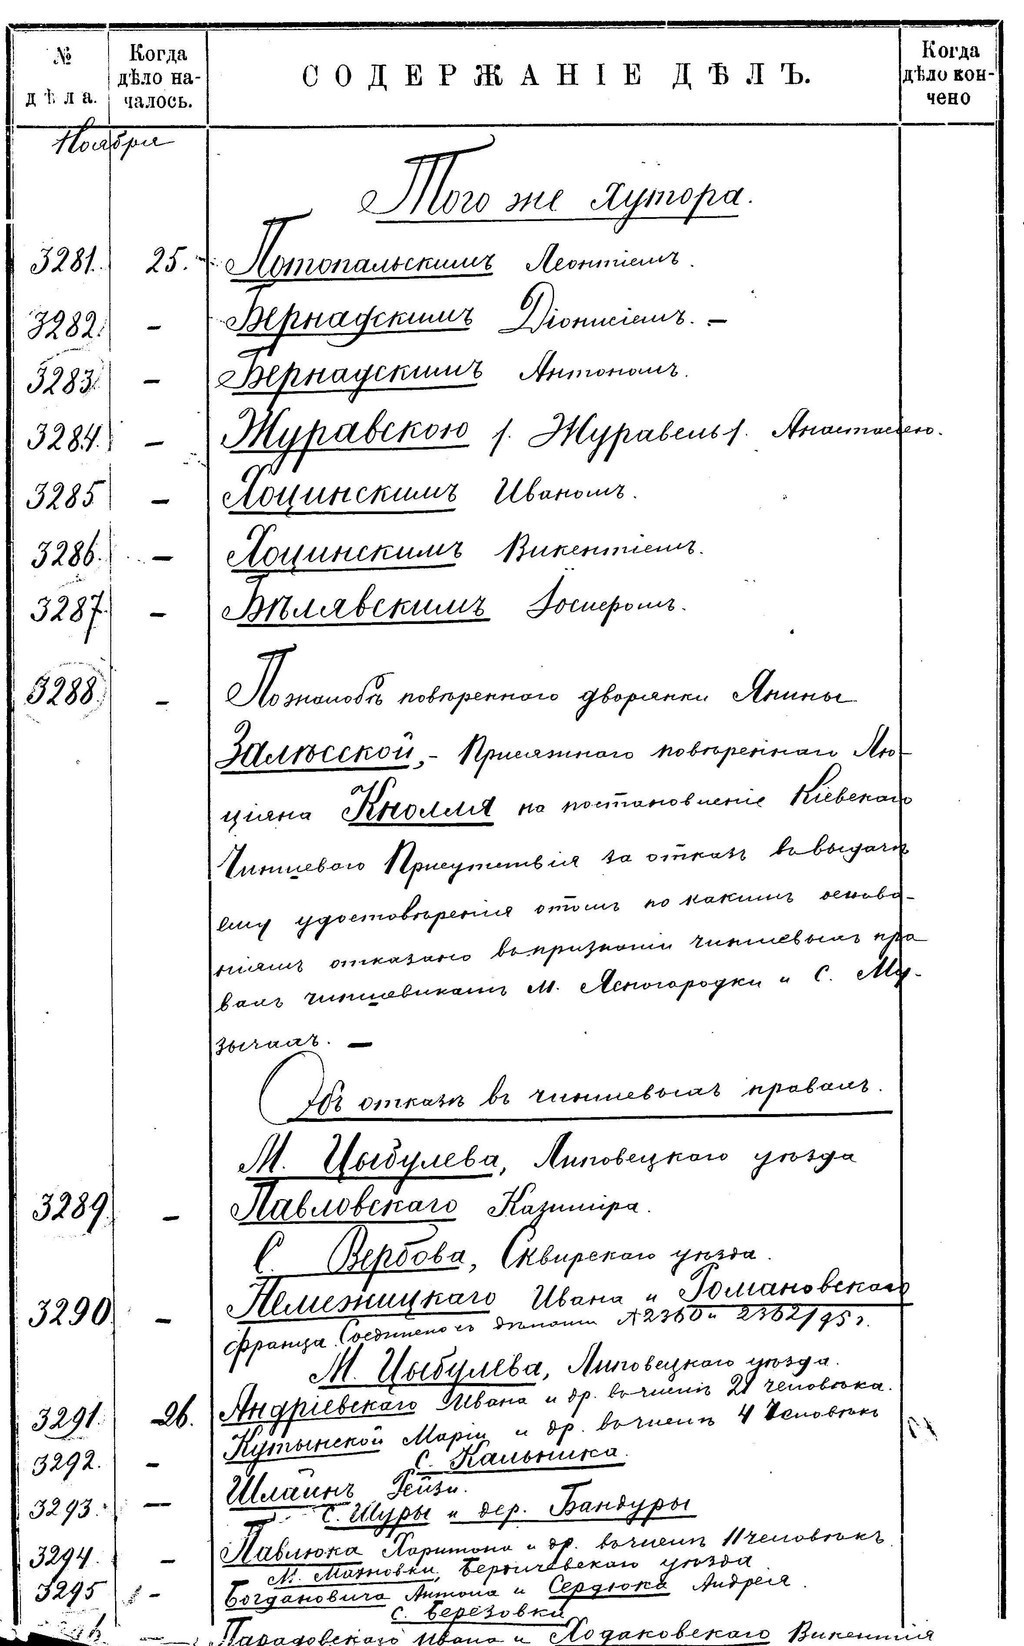 № дѣла.
Когда дѣло началось.
СОДЕРЖАНІЕ ДѢЛЪ.
Когда дѣло кончено
Ноября
Того же хутора.
3281. 25. Потопальскимъ Леонтіемъ.
3282. — Бернадскимъ Діонисіемъ. —
3283. — Бернадскимъ Антономъ.
3284. — Журавскою /. Журавель /. Анастасіею.
3285 — Хоцинскимъ Иваномъ.
3286. — Хоцинскимъ Викентіемъ.
3287. — Бѣлявскимъ
3288. — По жалобѣ повѣреннаго дворянки Янины
Залѣсской, - Присяжнаго повѣреннаго Лю-
ціяна Кнолля на постановленіе Кіевскаго
Чиншеваго Присутствія за отказъ въ выдачѣ
ему удостовѣренія о томъ по какимъ основа-
ніямъ отказано въ признаніи чиншевыхъ пра
вахъ чиншевикамъ м. Ясногородки и с. Му-
зычахъ. —
Объ отказѣ въ чиншевыхъ правахъ.
М. Цыбулева, Липовецкаго уѣзда
3289. — Павловскаго Казиміра.
С. Вербова, Сквирскаго уѣзда.
3290. — Немежицкаго Ивана и Романовскаго
Франца. Соединено съ дѣлами № 2360 и 2362/95 г.
М. Цыбулева, Липовецкаго уѣзда.
3291. 26. Андріевскаго Ивана и др. въ числѣ 21 человѣка.
3292. — Кутынской Маріи и др. въ числѣ 4 человѣкъ
С. Кальника.
3293. — Шлаинъ Гейзи.
С. Щуры и дер. Бандуры
3294. — Павлюка Харитона и др. въ числѣ 11 человѣкъ
М. Махновки, Бердичевскаго уѣзда
3295 — Богдановича Антона и Сердюка Андрея.
С. Березовки
— Ивана и Ходаковскаго Викентія